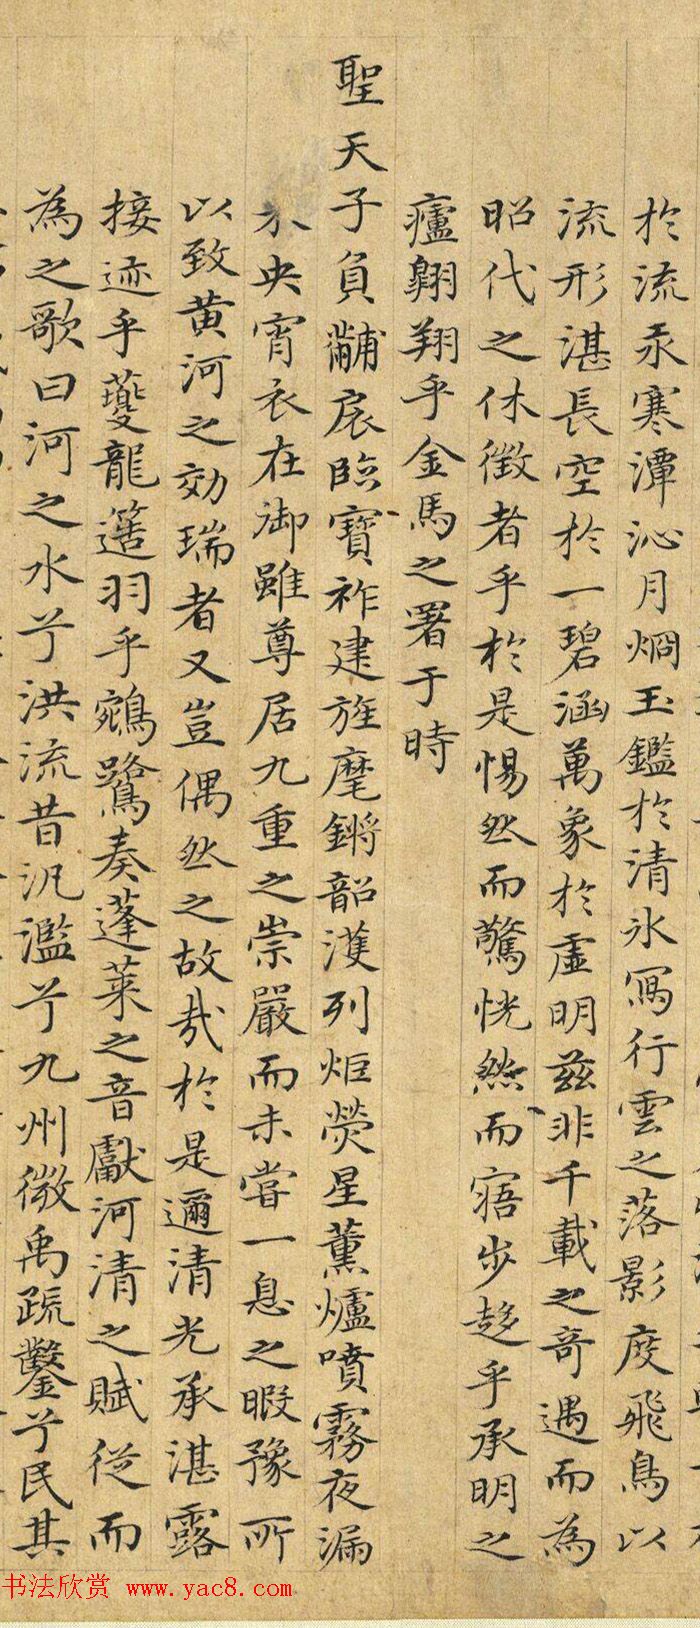 於流汞寒潭沁月烱玉鑑於清氷寫行雲之落影度飛鳥以
流形湛長空於一碧涵萬象於虛明茲非千載之奇遇而為
昭代之休徵者乎於是惕然而驚恍然而寤步趍乎承明之
廬翺翔乎金馬之署于時
聖天子負黼扆臨寶祚建旌麾鏘韶濩列炬熒星薰爐噴霧夜漏
未央宵衣在御雖尊居九重之崇嚴而未嘗一息之暇豫所
以致黃河之効瑞者又豈偶然之故哉於是邇清光承湛露
接迹乎夔龍簉羽乎鵷鷺奏蓬萊之音獻河清之賦從而
為之歌曰河之水兮洪流昔汎濫兮九州微禹疏鑿兮民其
书法欣赏 www.yac8.com